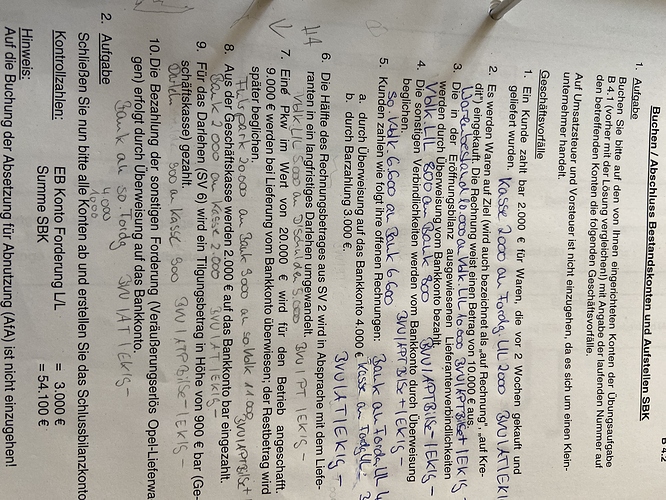 B 4.2
Buchen / Abschluss Bestandskonten und Aufstellen SBK
1. Aufgabe
Buchen Sie bitte auf den von Ihnen eingerichteten Konten der Übungsaufgabe
B 4.1 (vorher mit der Lösung vergleichen!) mit Angabe der laufenden Nummer auf
den betreffenden Konten die folgenden Geschäftsvorfälle.
Auf Umsatzsteuer und Vorsteuer ist nicht einzugehen, da es sich um einen Klein-
unternehmer handelt.
Geschäftsvorfälle
1. Ein Kunde zahlt bar 2.000 € für Waren, die vor 2 Wochen gekauft und
geliefert wurden. Kasse 2000 an Fordg LL 2000 BVU|AT|EKIS
2. Es werden Waren auf Ziel (wird auch bezeichnet als „auf Rechnung“, „auf Kre-
dit“) eingekauft. Die Rechnung weist einen Betrag von 10.000 € aus.
Warenbestand 10.000 an Vblk LL 10.000 BVU|APT|BilSe+|EKIS
3. Die in der Eröffnungsbilanz ausgewiesenen Lieferantenverbindlichkeiten
werden durch Überweisung vom Bankkonto bezahlt.
Vblk LL 800 an Bank 800 BVU|APT|BilSe-|EKIS-
4. Die sonstigen Verbindlichkeiten werden vom Bankkonto durch Überweisung
beglichen.
so Vblk 6.600 an Bank 6.600 BVU|APT|BilSe-|EKIS-
5. Kunden zahlen wie folgt ihre offenen Rechnungen:
a. durch Überweisung auf das Bankkonto 4.000 € Bank an Fordg LL
b. durch Barzahlung 3.000 €. Kasse an Fordg LL
BVU|AT|EKIS -
6. Die Hälfte des Rechnungsbetrages aus SV 2 wird in Absprache mit dem Liefe-
ranten in ein langfristiges Darlehen umgewandelt.
Vblk LL 5.000 an 5.000 BVU|PT|EKIS -
7. Eine Pkw im Wert von 20.000 € wird für den Betrieb angeschafft.
9.000 € werden bei Lieferung vom Bankkonto überwiesen; der Restbetrag wird
später beglichen.
Fuhrpark 20.000 an Bank 9000 an so Vblk 11000 BVU|APT|BilSe+
8. Aus der Geschäftskasse werden 2.000 € auf das Bankkonto bar eingezahlt.
Bank 2.000 an Kasse 2.000 BVU|AT|EKIS-
9. Für das Darlehen (SV 6) wird ein Tilgungsbetrag in Höhe von 900 € bar (Ge-
schäftskasse) gezahlt.
900 an Kasse 900 BVU|APT|BilSe-|EKIS-
10. Die Bezahlung der sonstigen Forderung (Veräußerungserlös Opel-Lieferwa
gen) erfolgt durch Überweisung auf das Bankkonto.
Bank an so. Fordg BVU|AT|EKIS-
4000
2. Aufgabe
Schließen Sie nun bitte alle Konten ab und erstellen Sie das Schlussbilanzkonto
Kontrollzahlen: EB Konto Forderung L/L = 3.000 €
Summe SBK = 54.100 €
Hinweis:
Auf die Buchung der Absetzung für Abnutzung (AfA) ist nicht einzugehen!